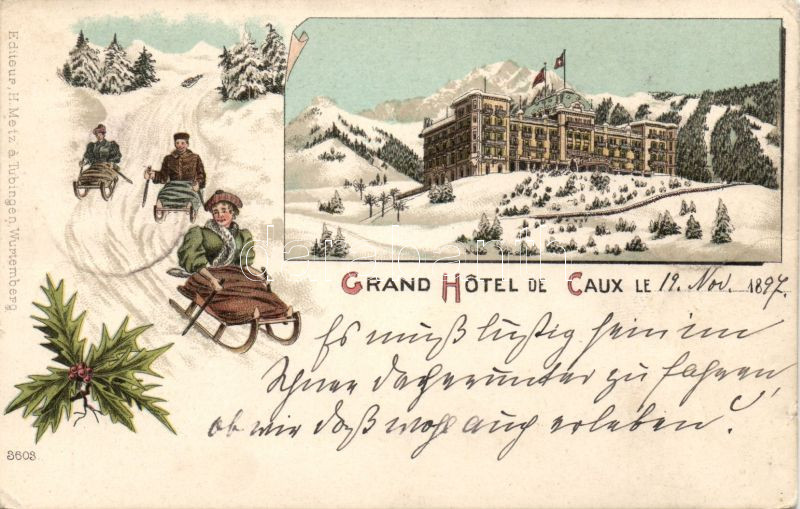 Editeur, H. Metz à Tubingen Wurtemberg
GRAND HÔTEL DE CAUX LE 19. Nov. 1897.
Es muß lustig sein im
Schnee da herunter zu fahren,
ob wir daß wohl auch erleben?
3603.
darabanth